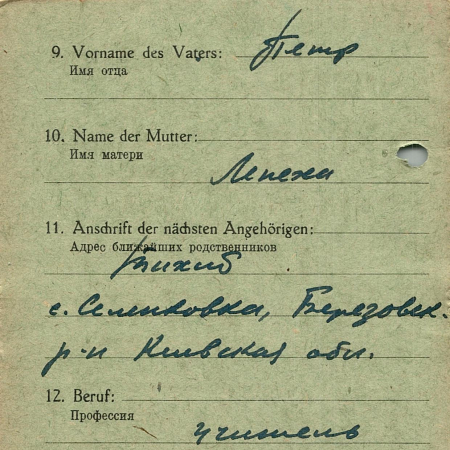 9. Vorname des Vaters: Петр
Имя отца
10. Name der Mutter:
Имя матери
Лепеха
11. Anschrift der nächsten Angehörigen:
Адрес ближайших родственников
с. Селенковка, Березовск.
р-н Киевская обл.
12. Beruf:
Профессия
учитель